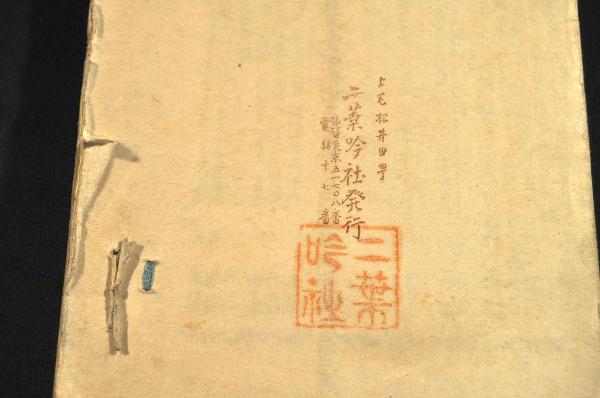 上毛松井田町
二葉吟社発行
振替東京五一七〇八番
電話十七番
二葉
吟社